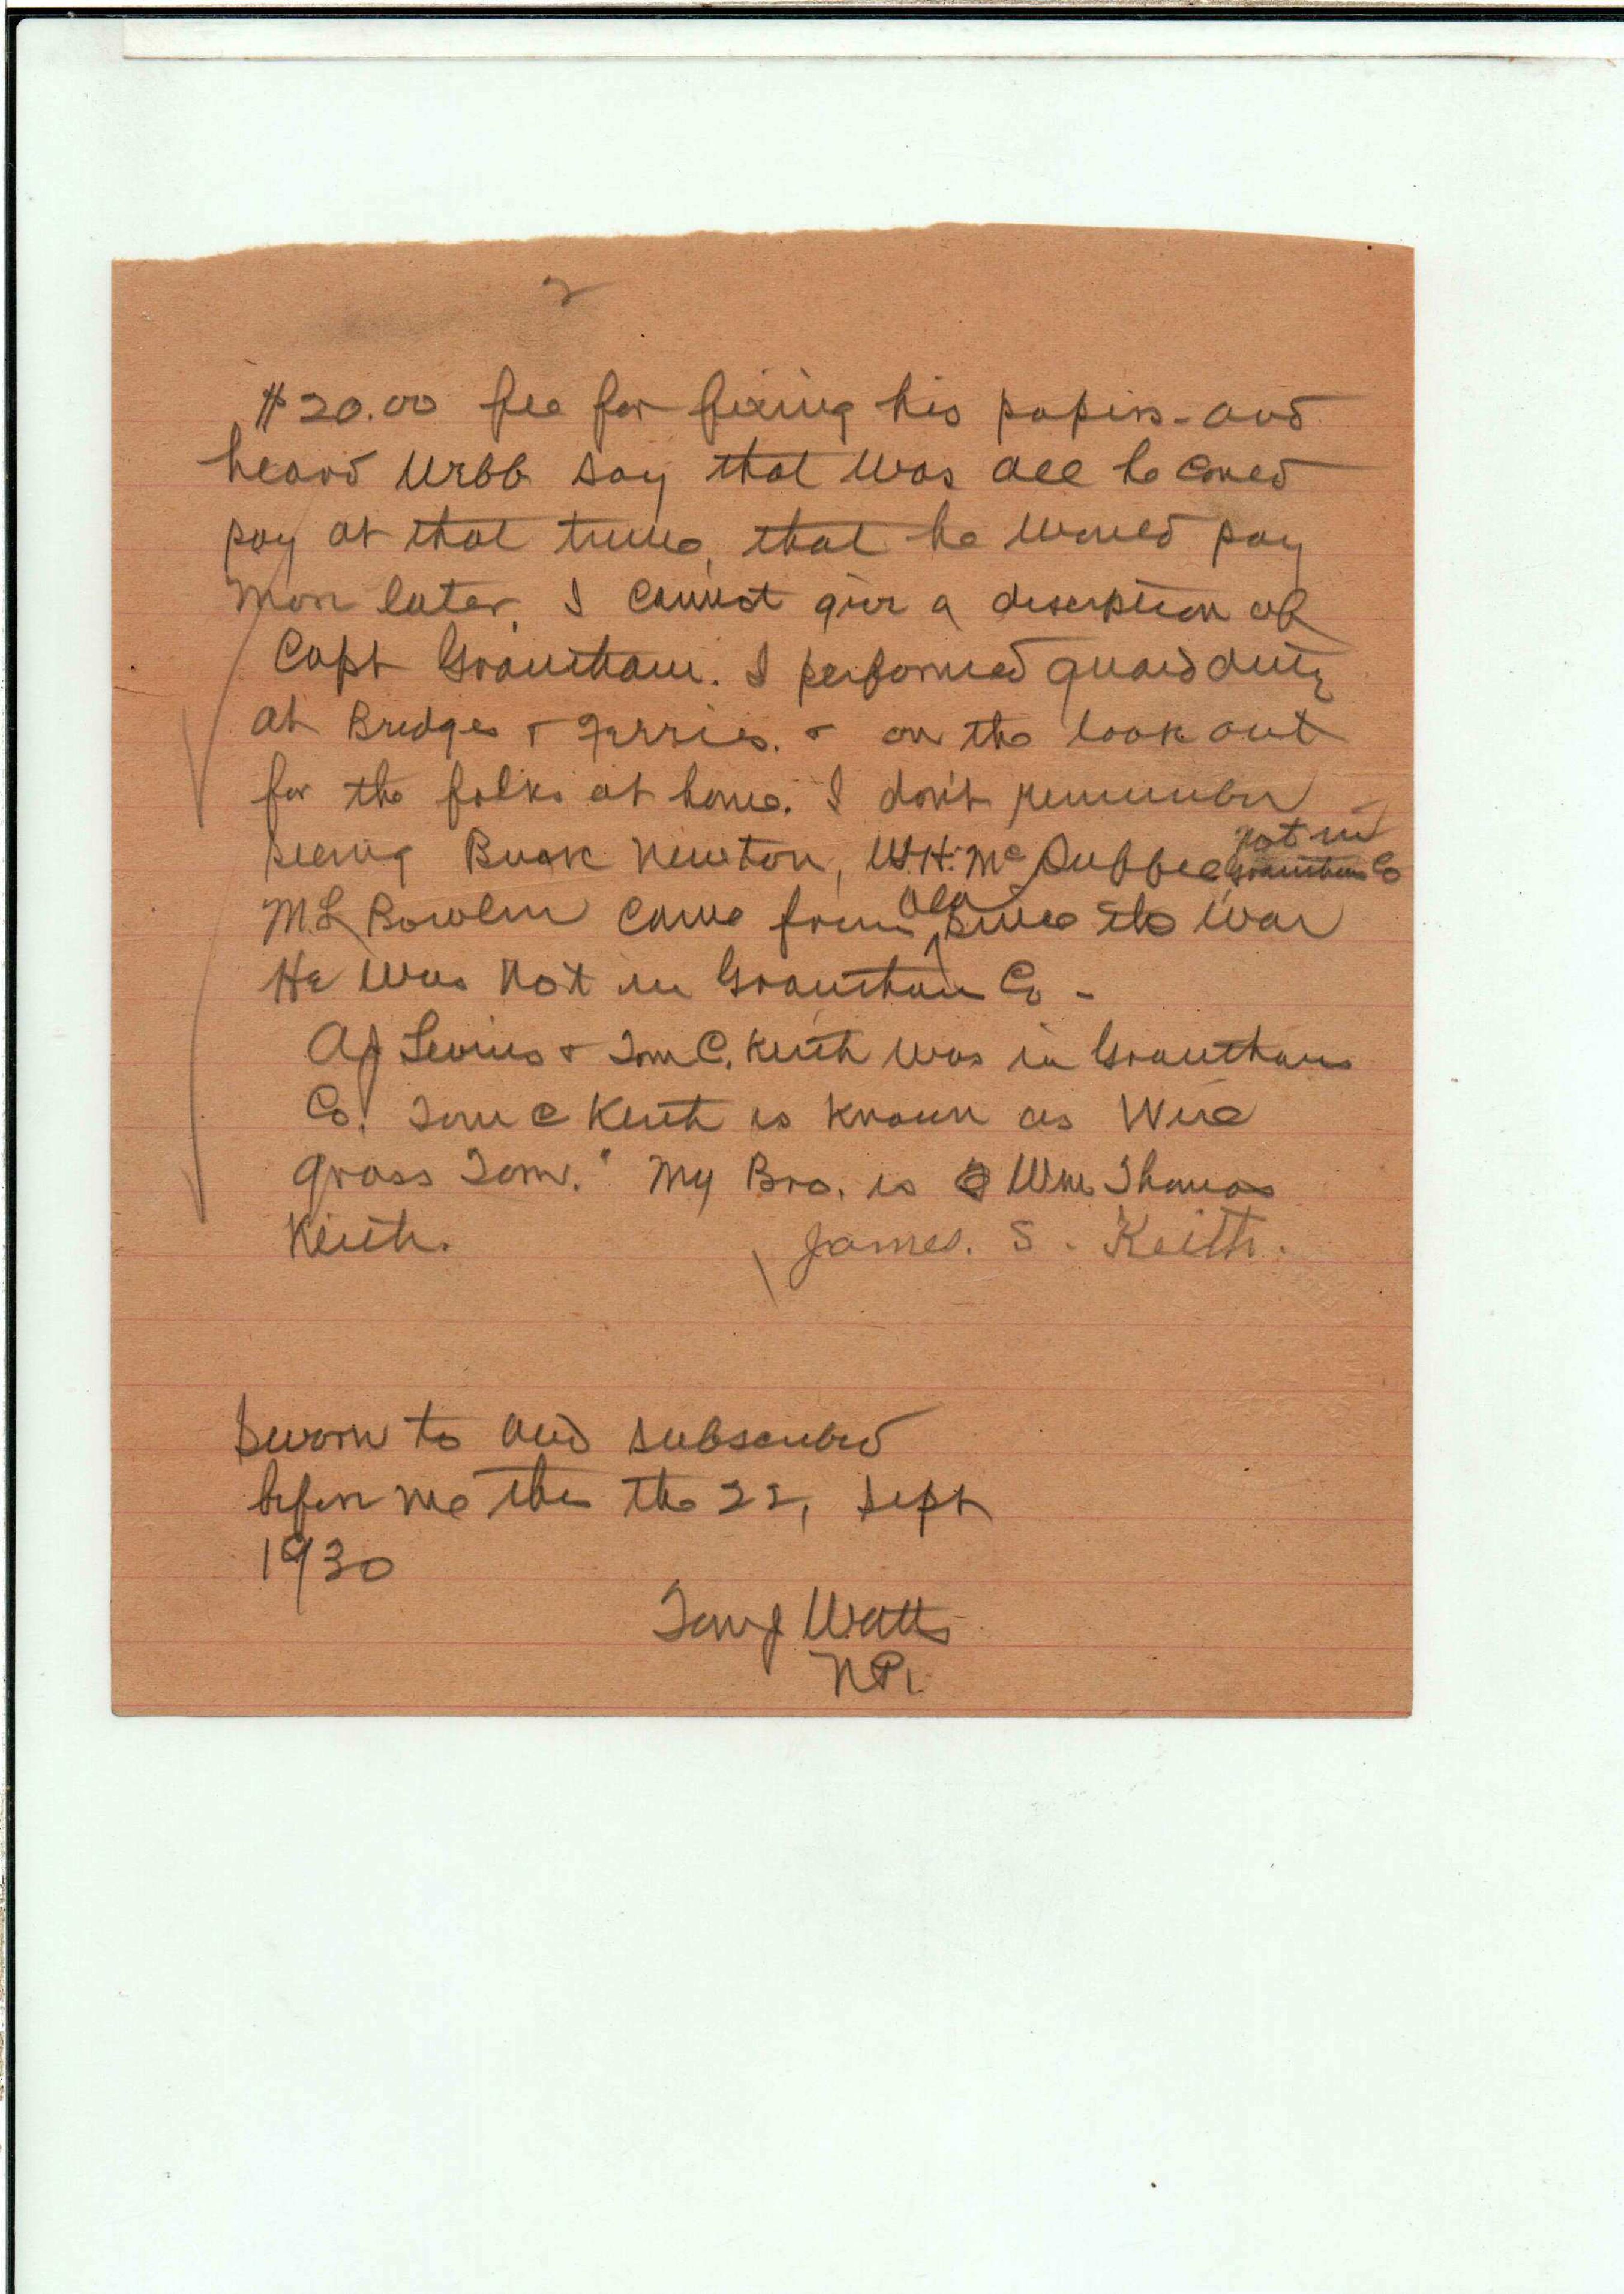 2
$20.00 fee for fixing his papers - and
heard Webb say that was all he could
pay at that time, that he would pay
more later. I cannot give a description of
Capt Grantham. I performed guard duty
at Bridges & Ferries. & on the look out
for the folks at home. I don't remember
seeing Buck Newton, W.H. McDuffee, not in Grantham Co
M.L Bowlin came from Ala since the war
He was not in Grantham Co -
AJ & Tom C. Keith was in Granthams
Co. Tom C Keith is known as Wire
grass Tom." My Bro. is Wm Thomas
Keith. James. S. Keith.
Sworn to and subscribed
before me this the 22, Sept
1930
Tom J Watts
N.P.